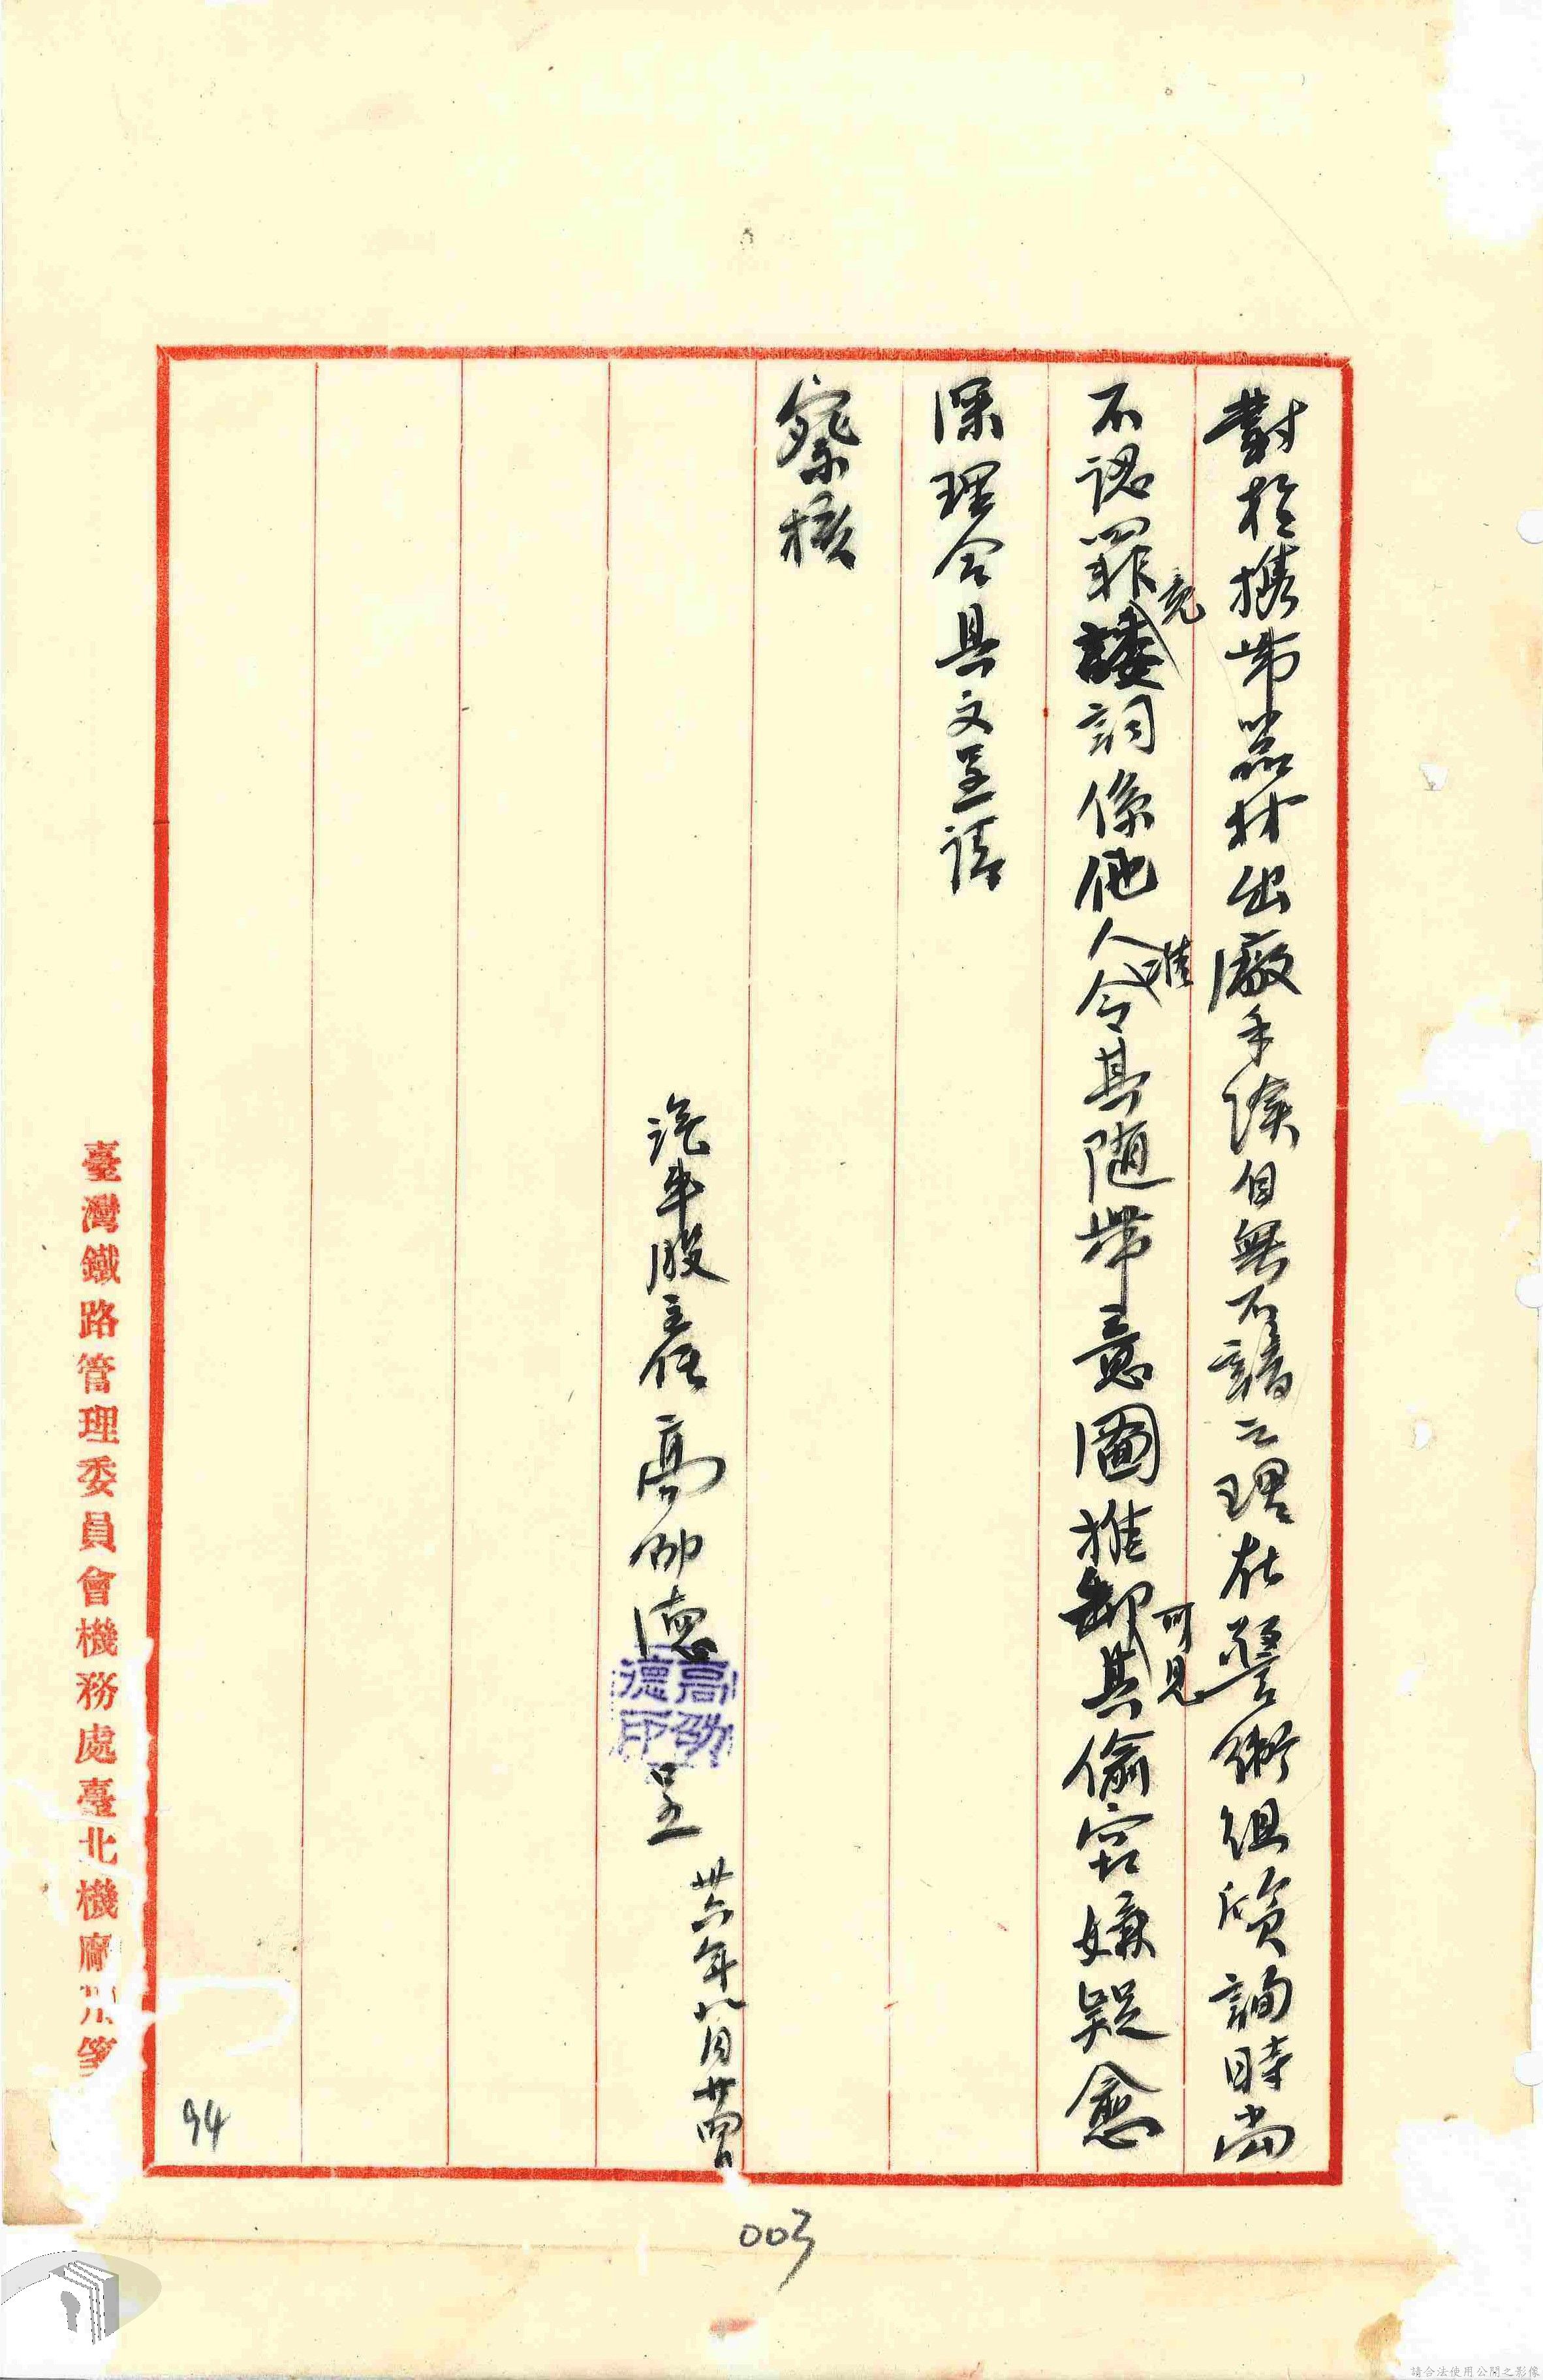 對於攜帶器材出廠手續自無不諳之理在警衛組審詢時尚
不認罪竟諉詞係他人准令其隨帶意圖推卸可見其偷窃嫌疑愈
深理合具文呈請
察核
汽車股主任 高卲德 呈 卅六年八月廿四日
高卲德印
臺灣鐵路管理委員會機務處臺北機廠用箋
94
003
請合法使用公開之影像